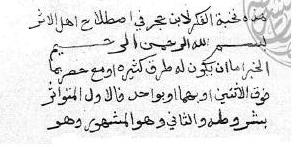 هذه نخبة الفكر لابن حجر في اصطلاح اهل الاثر
بسم الله الرحمن الرحيم
الخبر اما ان يكون له طرق كثيرة او مع حصر بما
فوق الاثنين او بهما او بواحد فالاول المتواتر
بشروطه والثاني وهو المشهور وهو